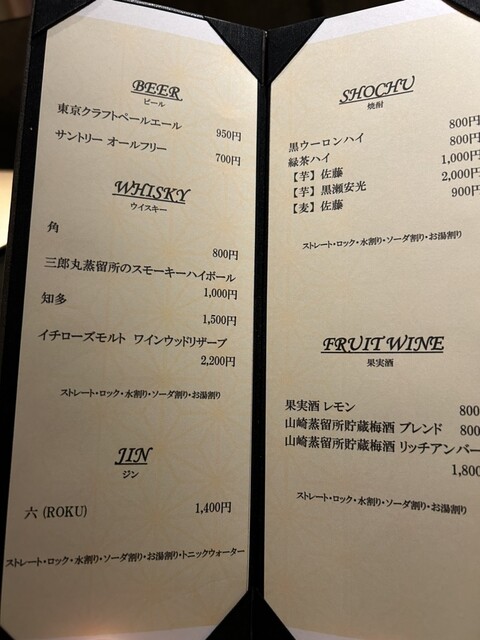 BEER
ビール
東京クラフトペールエール
950円
サントリー オールフリー
700円
WHISKY
ウイスキー
角
800円
三郎丸蒸留所のスモーキーハイボール
1,000円
知多
1,500円
イチローズモルト ワインウッドリザーブ
2,200円
ストレート・ロック・水割り・ソーダ割り・お湯割り
JIN
ジン
六 (ROKU) 1,400円
ストレート・ロック・水割り・ソーダ割り・お湯割り・トニックウォーター
SHOCHU
焼酎
黒ウーロンハイ 800円
緑茶ハイ 800円
【芋】佐藤 1,000円
【芋】黒瀬安光 2,000円
【麦】佐藤 900円
ストレート・ロック・水割り・ソーダ割り・お湯割り
FRUIT WINE
果実酒
果実酒 レモン 800
山崎蒸留所貯蔵梅酒 ブレンド 800
山崎蒸留所貯蔵梅酒 リッチアンバー
1,800
ストレート・ロック・水割り・ソーダ割り・お湯割り